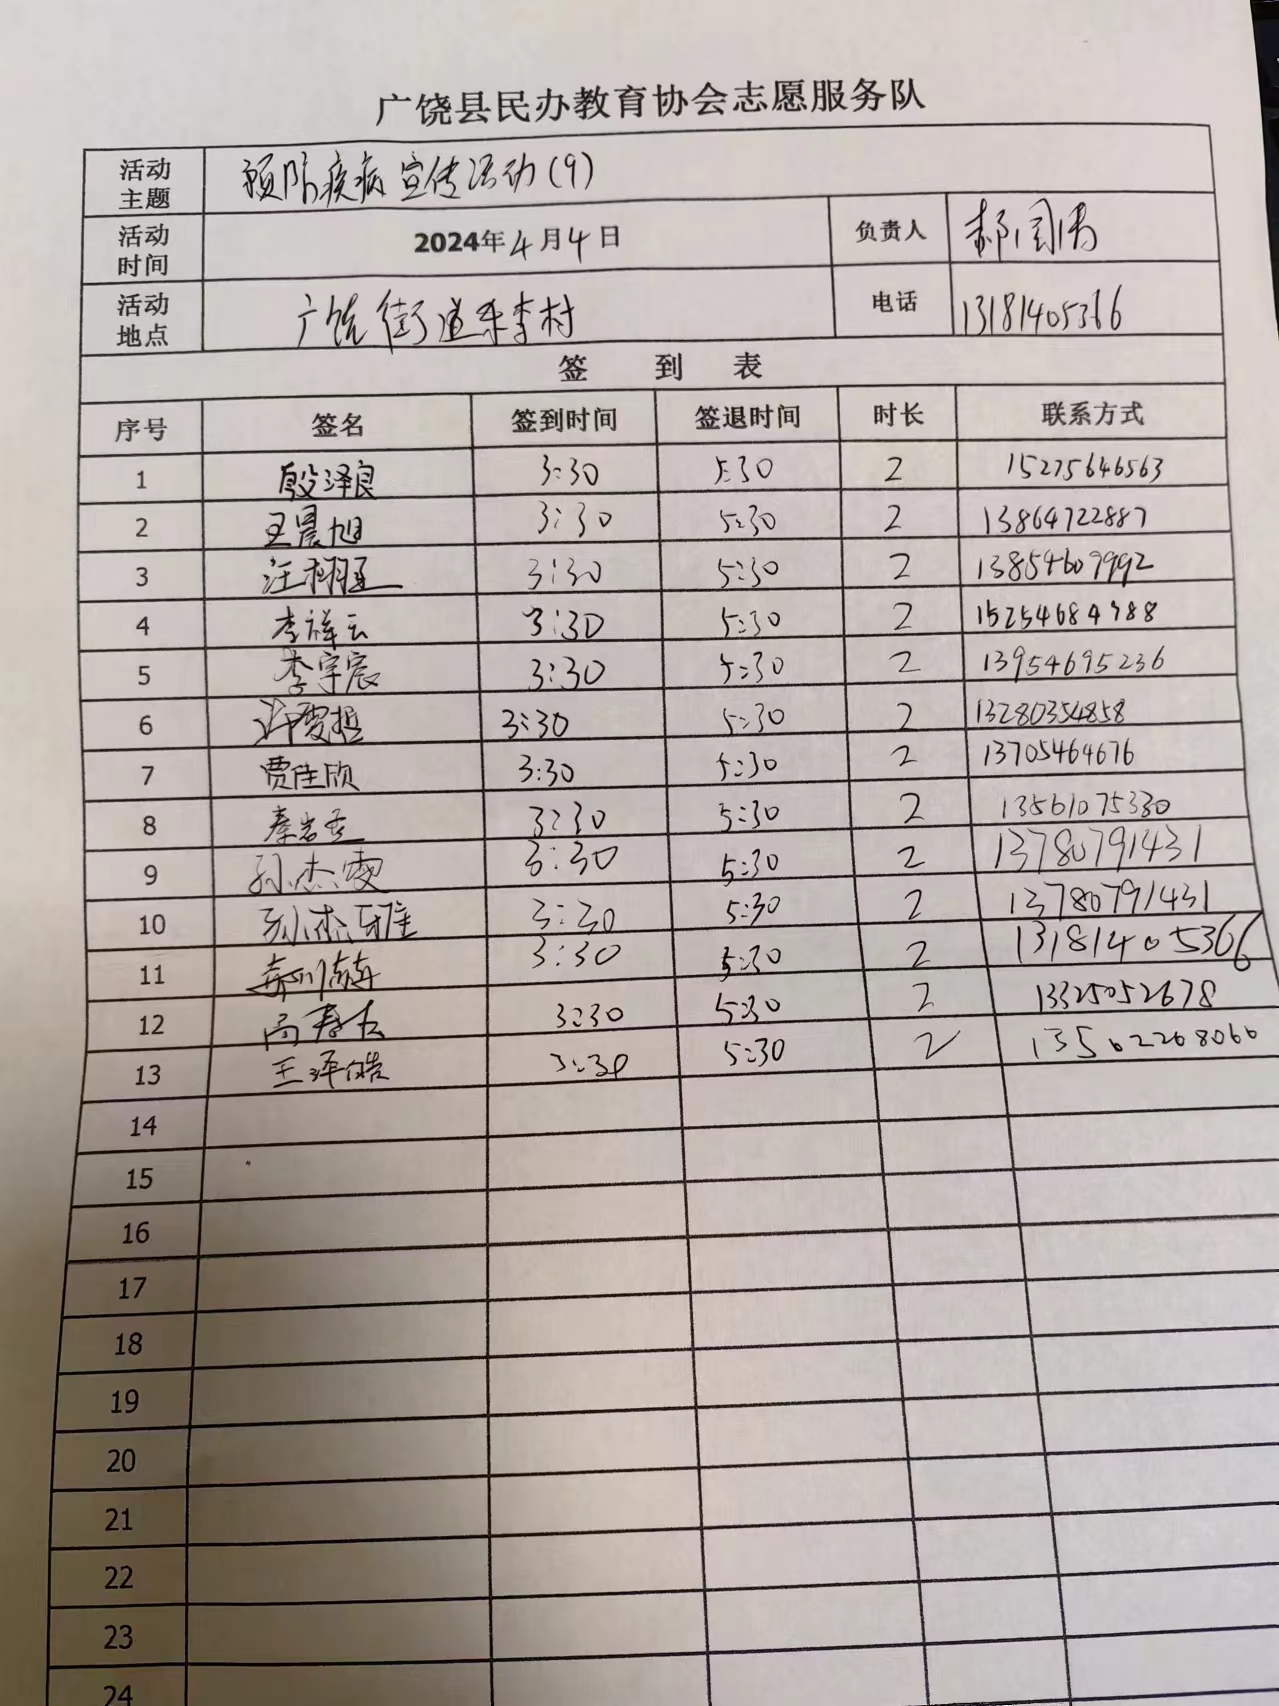 广饶县民办教育协会志愿服务队
活动主题 预防疾病宣传活动(9)
活动时间 2024年4月4日 负责人 郝
活动地点 广饶街道朱李村 电话 13181405366
签 到 表
序号 签名 签到时间 签退时间 时长 联系方式
1 殷泽良 3:30 5:30 2 15275646563
2 王晨旭 3:30 5:30 2 13864722887
3 汪 3:30 5:30 2 13854607992
4 李祥云 3:30 5:30 2
5 李宇宸 3:30 5:30 2 13954695236
6 3:30 5:30 2 13280354858
7 贾佳欣 3:30 5:30 2 13705464676
8 秦 3:30 5:30 2 13561075330
9 孙杰雯 3:30 5:30 2 13780791431
10 孙杰雅 3:30 5:30 2 13780791431
11 3:30 5:30 2 13181405366
12 高 3:30 5:30 2 13325052678
13 王泽皓 3:30 5:30 2 13562268066
14
15
16
17
18
19
20
21
22
23
24